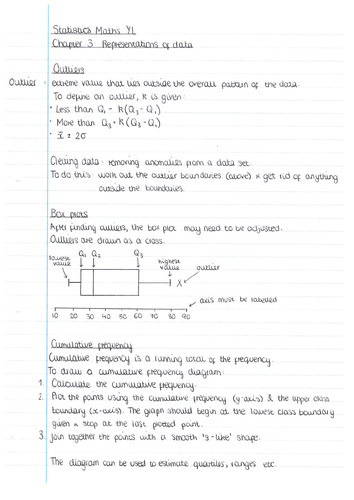 Statistics Maths Y1
Chapter 3 Representations of data
Outliers
Outlier - extreme value that lies outside the overall pattern of the data.
To define an outlier, k is given:
• Less than Q₁ - k(Q₃ - Q₁)
• More than Q₃ + k(Q₃ - Q₁)
• x̄ ± 2σ
Clearing data - removing anomalies from a data set.
To do this: work out the outlier boundaries (above) & get rid of anything
outside the boundaries.
Box plots
After finding outliers, the box plot may need to be adjusted.
Outliers are drawn as a cross.
lowest value Q₁ Q₂ Q₃ highest value outlier
X
axis must be labelled
10 20 30 40 50 60 70 80 90
Cumulative frequency
Cumulative frequency is a running total of the frequency.
To draw a cumulative frequency diagram:
1. Calculate the cumulative frequency.
2. Plot the points using the cumulative frequency (y-axis) & the upper class
boundary (x-axis). The graph should begin at the lowest class boundary
given & stop at the last plotted point.
3. Join together the points with a smooth 's-like' shape.
The diagram can be used to estimate quartiles, ranges etc